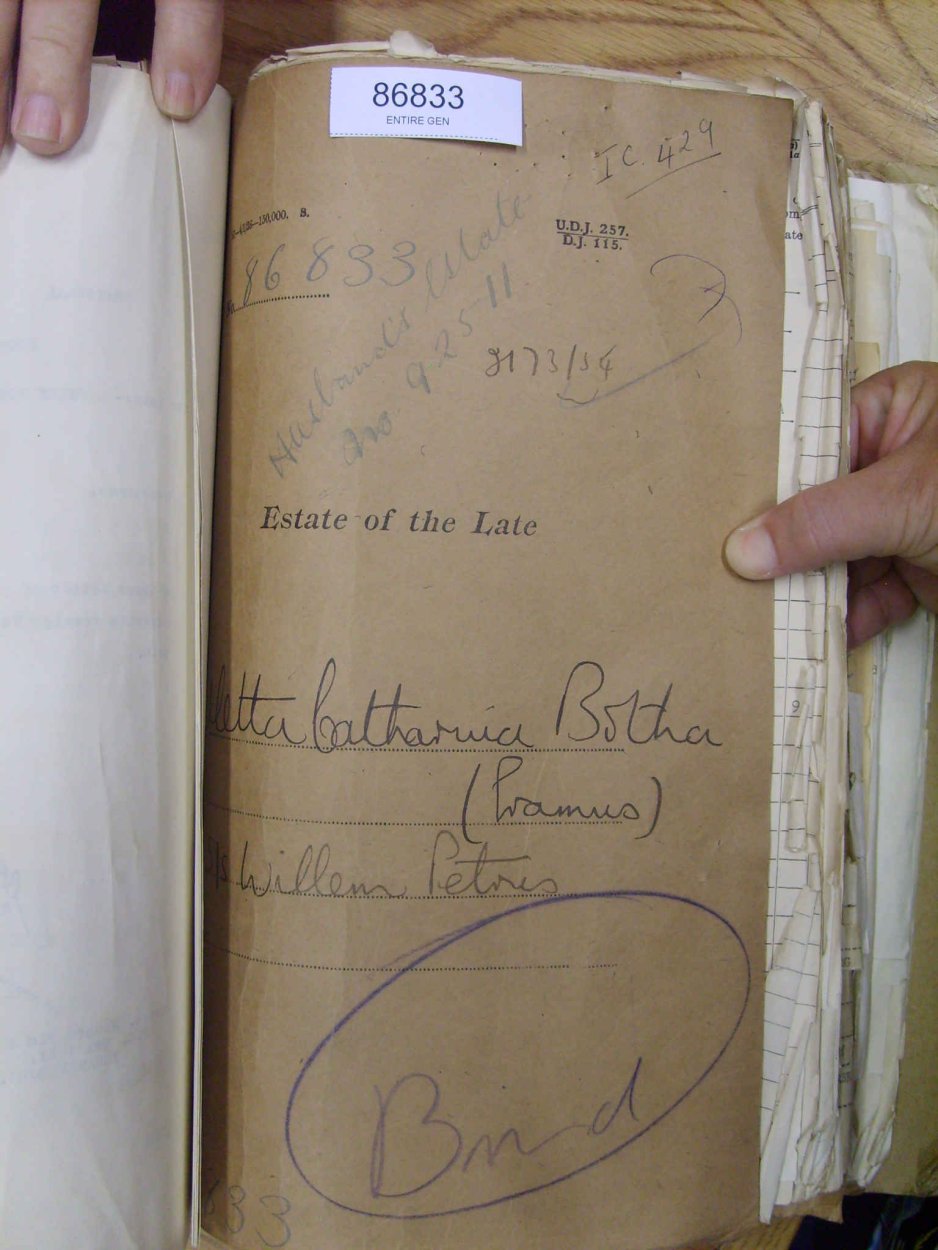 86833
ENTIRE GEN
I C. 429
150,000. S.
U.D.J. 257.
D.J. 115.
86833
Husband's Estate
No 92511
8173/54
Estate of the Late
letta Catharina Botha
(Pramus)
Willem Petrus
Bind
33